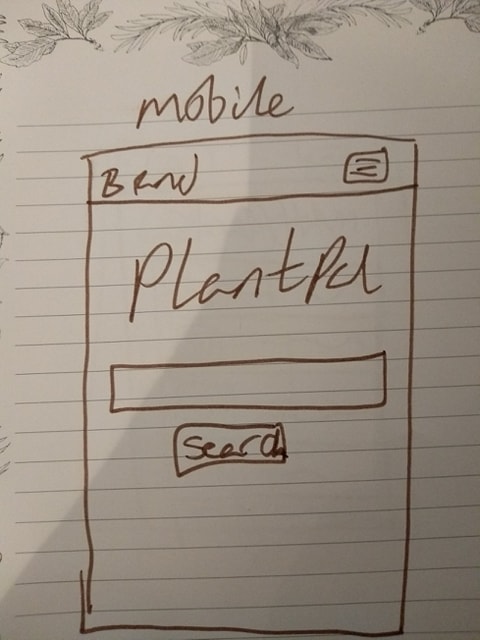 mobile
Brand
PlantPal
Search